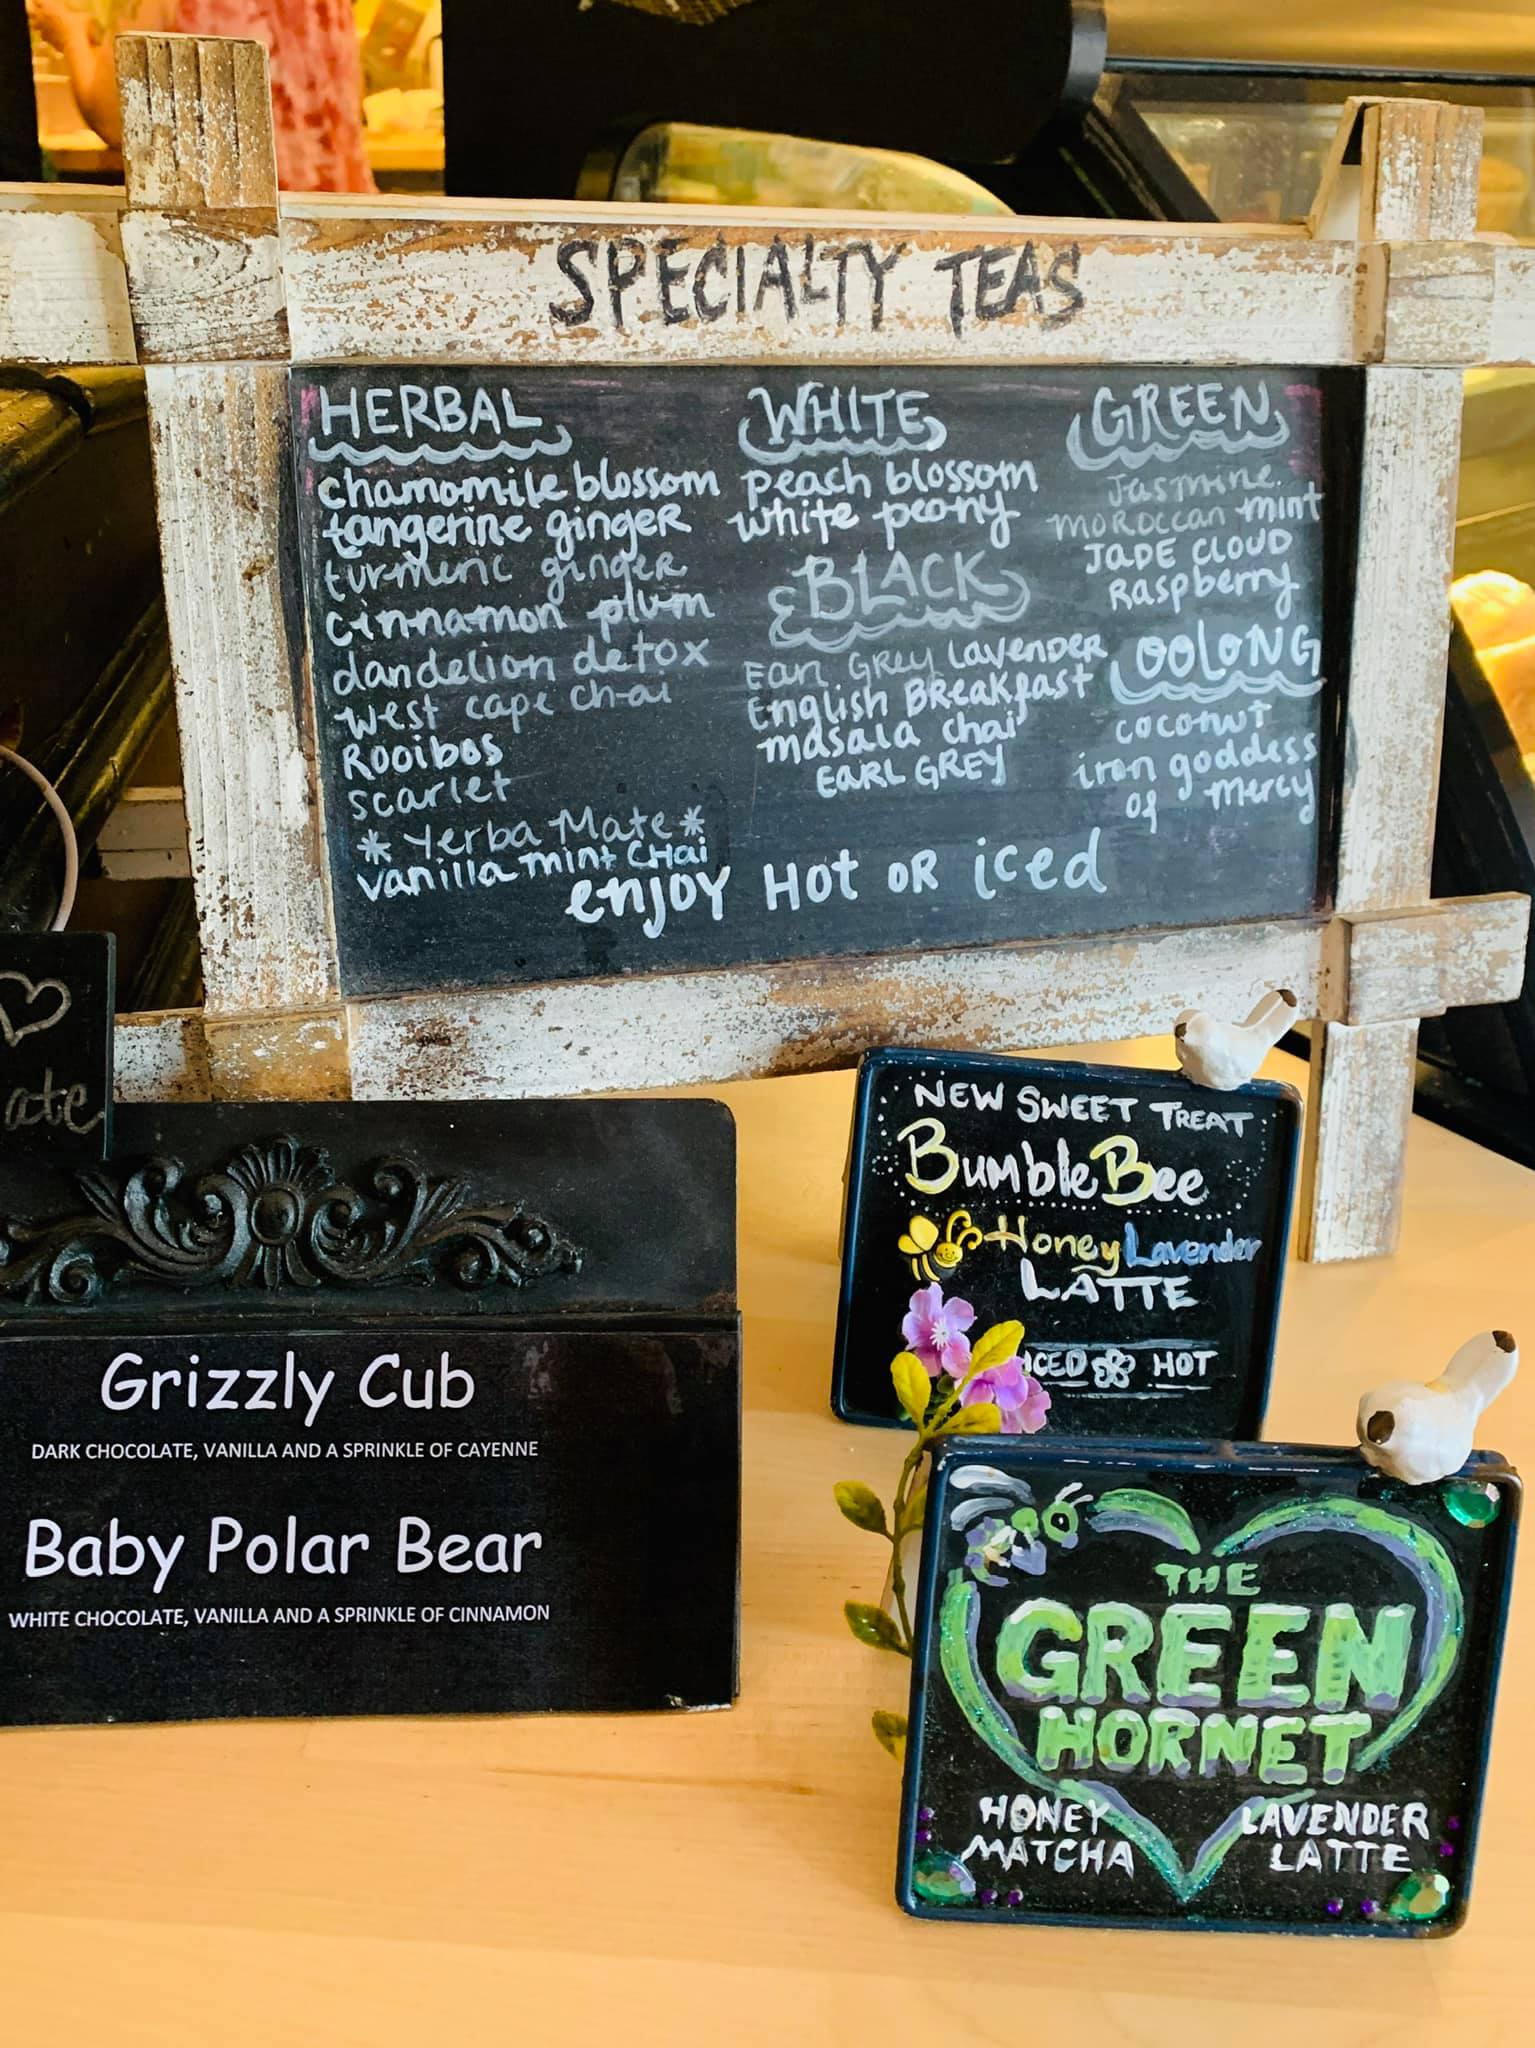 SPECIALTY TEAS
HERBAL
chamomile blossom
tangerine ginger
turmeric ginger
cinnamon plum
dandelion detox
west cape chai
Rooibos
scarlet
* Yerba Mate *
vanilla mint CHai
WHITE
peach blossom
white peony
BLACK
Earl Grey Lavender
English BReakfast
masala chai
EARL GREY
GREEN
Jasmine
moroccan mint
JADE CLOUD
Raspberry
OOLONG
coconut
iron goddess
of mercy
enjoy Hot or iced
ate
Grizzly Cub
DARK CHOCOLATE, VANILLA AND A SPRINKLE OF CAYENNE
Baby Polar Bear
WHITE CHOCOLATE, VANILLA AND A SPRINKLE OF CINNAMON
NEW SWEET TREAT
Bumble Bee
Honey Lavender
LATTE
ICED HOT
THE
GREEN
HORNET
HONEY
MATCHA
LAVENDER
LATTE